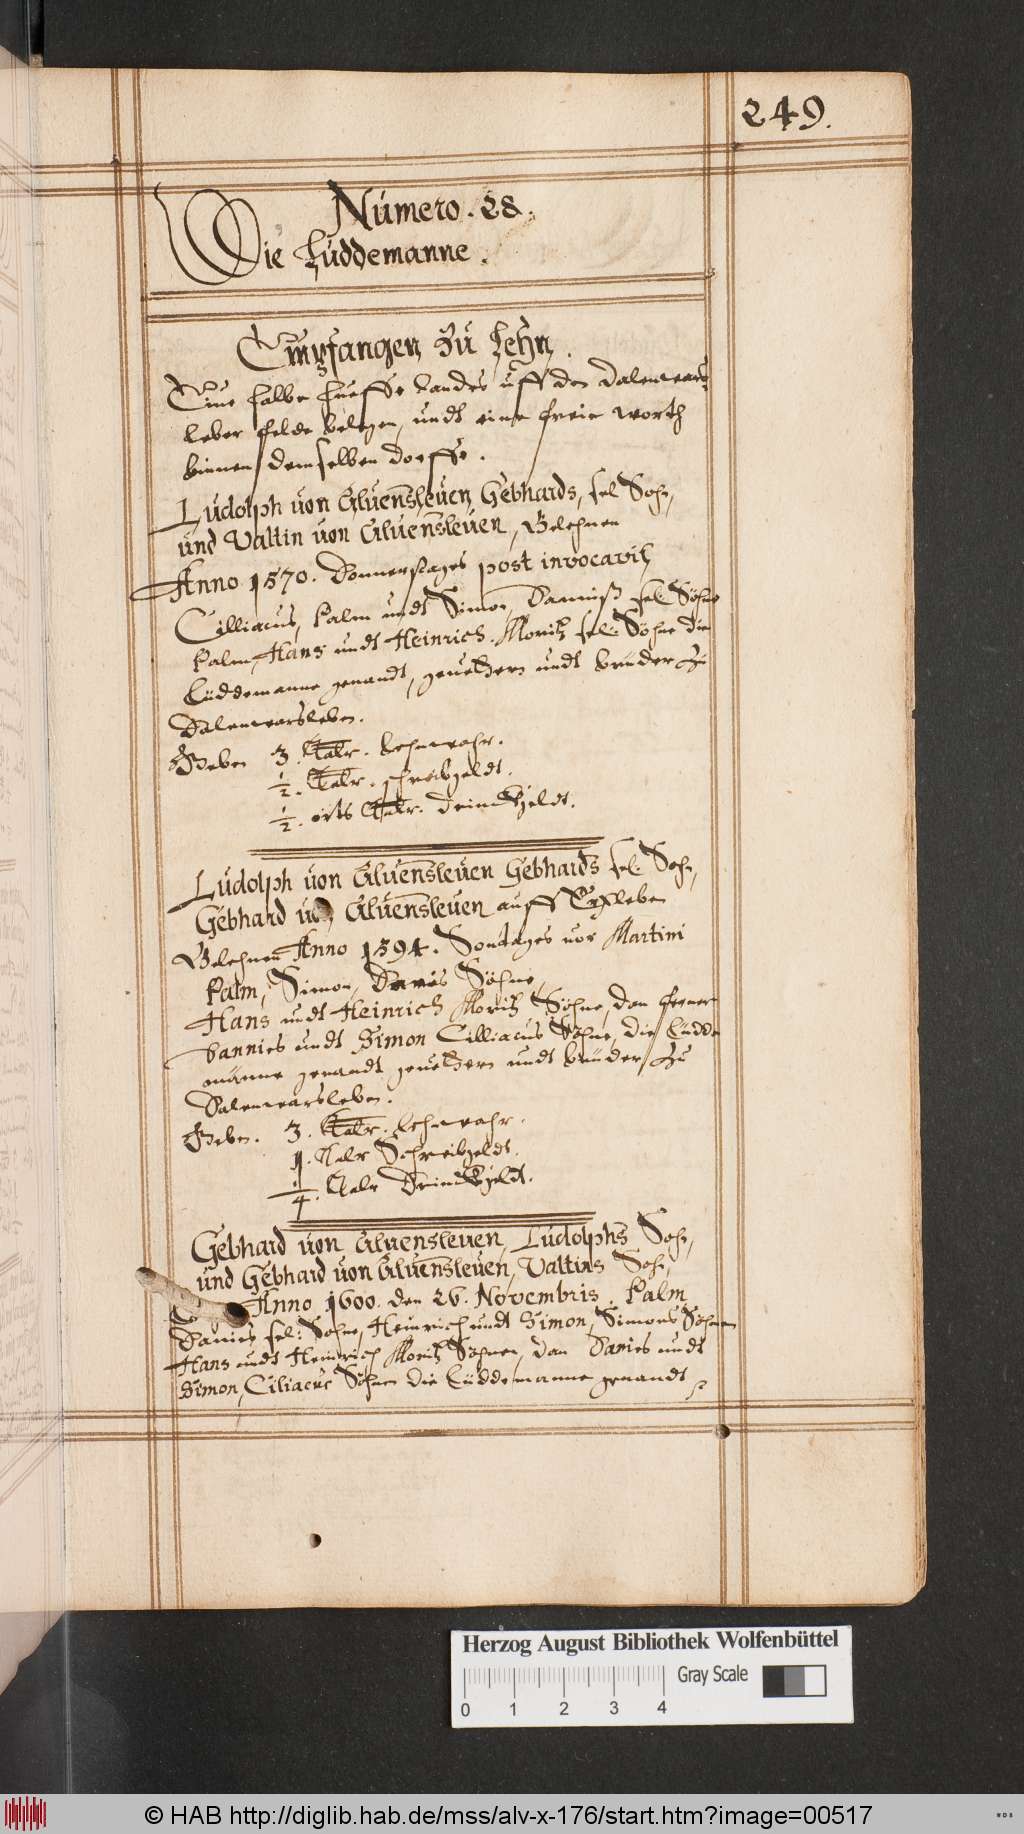 249.
Numero. 28.
Die Lüddemanne.
Empfangen zu Lehn.
Eine halbe hueffe Landes uff den Dalenwars
leber felde belegen, undt eine freie worth
binnen demselben dorffe.
Ludolph von Alvensleven Gebhards, sel Sohn,
und Valtin von Alvensleven, Belehnen
Anno 1570. Donnerstages post invocavit,
Cilliacus, Palm undt Simon, Danniß sel: Söhne
Palm, Hans undt Heinrich. Moritz sel: Söhne die
Lüddemanne genandt, gevettern undt brüder zu
Dalenwarsleben.
Geben 3. Talr. Lehnwahr.
½. Talr. schreibgeldt.
½. orts Talr. Drinckgeldt.
Ludolph von Alvensleven Gebhards sel. Sohn,
Gebhard von Alvensleven auff Erxleben
Belehnen Anno 1594. Sontages vor Martini
Palm, Simon, Danies Söhne,
Hans undt Heinrich Moritz Söhne, dan ferner
Dannies undt Simon Cilliacus Söhne, die Lüdde
manne genandt gevettern undt brüder zu
Dalenwarsleben.
Geben. 3. Talr. Lehnwahr.
1. Talr Schreibgeldt.
¼. Talr Drinckgeldt.
Gebhard von Alvensleven, Ludolphs Sohn,
und Gebhard von Alvensleven, Valtins Sohn,
Anno 1600. den 26. Novembris. Palm
Danies sel: Sohne, Heinrich undt Simon, Simons Söhnen
Hans undt Heinrich Moritz Söhnen, dan Danies undt
Simon, Ciliacus Söhnen die Lüddemanne genandt
Herzog August Bibliothek Wolfenbüttel
Gray Scale
0 1 2 3 4
© HAB http://diglib.hab.de/mss/alv-x-176/start.htm?image=00517